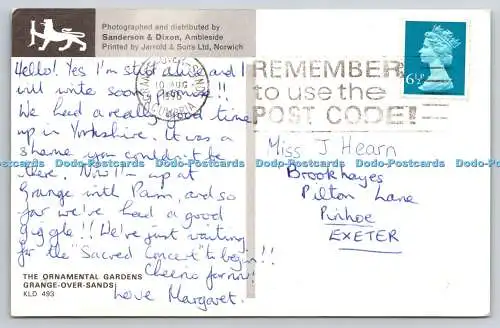 Photographed and distributed by
Sanderson & Dixon, Ambleside
Printed by Jarrold & Sons Ltd, Norwich
Hello! Yes I'm still alive and I
will write soon, promise!!
We had a really good time
up in Yorkshire. It was a
shame you couldn't be
there. Now I'm up at
Grange with Pam, and so
far we've had a good
giggle!! We're just waiting
for the "Sacred Concert" to begin!!
Cheerio for now!
Love Margaret.
THE ORNAMENTAL GARDENS
GRANGE-OVER-SANDS
KLD 493
10 AUG
1976
CUMBRIA
REMEMBER
to use the
POST CODE!
6½P
Miss J Hearn
Brookhayes
Pilton Lane
Pinhoe
EXETER
Dodo-Postcards Dodo-Postcards Dodo-Postcards Dodo-Postcards Dodo-Postcards Dodo-Postcards